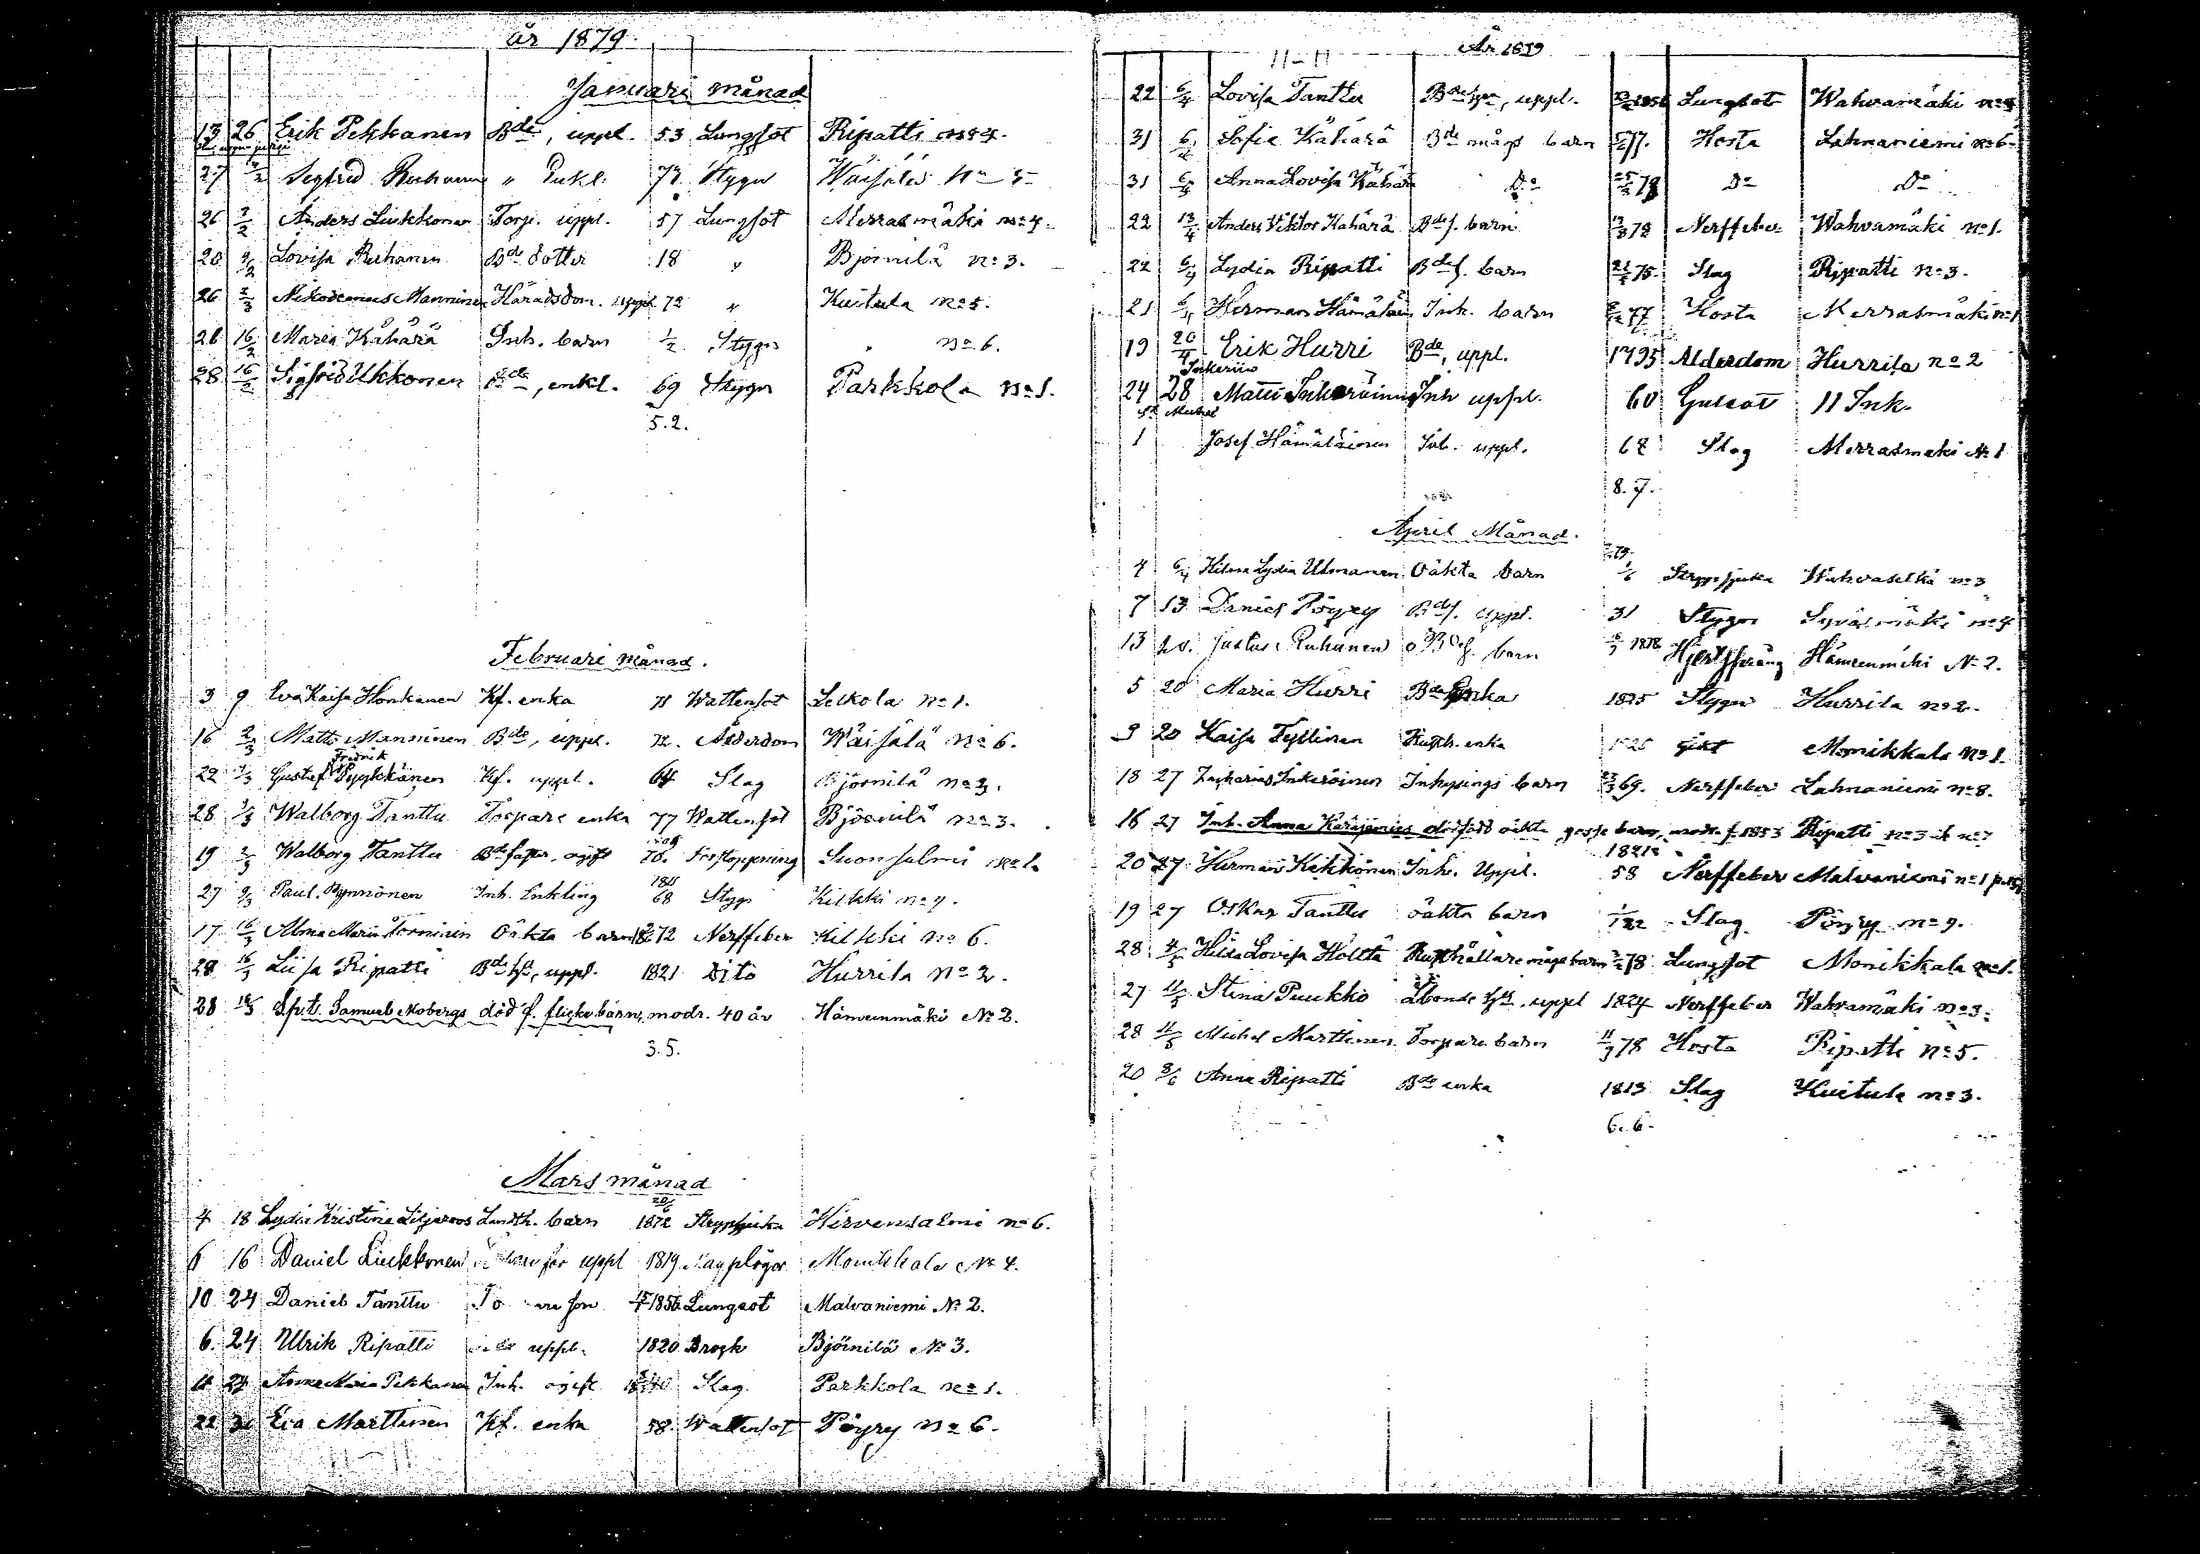 år 1879.
Januari månad
13 26 Erik Pekkanen Bde, uppl. 53 Lungsot Ripatti
27 Sigfrid Ruhanen " Enkl. Stygn Wäisälä
26 2/2 Anders Liukkonen Torp. uppl. 57 Lungsot Merrasmäki No 4.
20 9/2 Lovisa Ruhanen Bde dotter 18 " Björnilä No 3.
26 2/3 Nikodemus Manninen Häradsdom. uppl. 72 " Kuitula No 5.
26 16/2 Maria Kähärä Inh. barn 1/2 Stygn " No 6.
28 16/2 Sigfrid Ukkonen Bde, enkl. 69 Stygn Parkkola No 1.
5.2.
Februari månad.
3 9 Eva Kaisa Honkanen Kf. enka 71 Wattensot Leikola No 1.
16 2/3 Matts Manninen Bde, uppl. 72. Ålderdom Wäisälä No 6.
Fredrik
22 Gustaf Pyykkönen Kf. uppl. 64 Slag Björnilä No 3.
28 Walborg Tanttu Torpare enka 77 Wattensot Björnilä No 3.
19 2/3 Walborg Tanttu ogift 70. Förstoppning Suonsalmi No 1.
1811
27 9/3 Paul Pynnönen Inh. Enkling 68 Styg Kilkki
17 16/3 Alma Maria Torniainen Oäkta barn 72 Nerffeber Kilkki No 6.
28 16/3 Liisa Ripatti Bde uppl. 1821 Dito Hurrila No 2.
28 16/3 Sp.t. Samuel Mobergs död f. flicko barn, modr. 40 år Hämeenmäki No 2.
3.5.
Mars månad
4 18 Lydia Kristina Liljeroos Landth. barn 1872 Strypsjuka Hirvensalmi No 6.
6 16 Daniel Liukkonen uppl 1819 Monikkala No 4.
10 24 Daniel Tanttu son 1856 Lungsot Malvaniemi No 2.
6. 24 Ulrik Ripatti uppl. 1820 Brock Björnilä No 3.
11 24 Anna Maria Pekkanen Inh. ogift Slag. Parkkola No 1.
22 30 Eva Marttinen Kf. enka 58. Wattensot Pöyry No 6.
År 1879
22 6/4 Lovisa Tanttu uppl. Lungsot Wahvamäki
31 Sofie Kähärä Bde mågs barn 77. Hosta Lahnaniemi No 6.
31 6/4 Anna Lovisa Kähärä Do 78 Do Do
22 13/4 Anders Viktor Kähärä Bde s. barn 78 Nerffeber Wahvamäki No 1.
22 6/4 Lydia Ripatti Bde s. barn 75. Slag Ripatti No 3.
21 6/4 Herman Hämäläinen Inh. barn 77 Hosta Merrasmäki No 1
19 20/4 Erik Hurri Bde, uppl. 1795 Alderdom Hurrila No 2
24 28 Matti Inkeröinen Inh uppl. 60 Gulsot 11 Ink.
St Michel
1 Josef Hämäläinen Inh. uppl. 68 Slag Merrasmäki No 1
8.7.
April Månad.
4 6/4 Hilma Lydia Utmanen Oäkta barn 1/6 Strypsjuka Wahvaselkä No 3
7 13 Daniel Pöyry Bdes. uppl. 31 Stygn Syväsmäki No 4
13 20. Justus Ruhanen barn 1878 Hjertsprång Hämeenmäki No 2.
5 20 Maria Hurri Bde Enka 1825 Stygn Hurrila No 2.
9 20 Kaisa Tyllinen Rusth. enka Gikt Monikkala No 1.
18 27 Zacharias Inkeröinen Inhysings barn 69. Nerffeber Lahnaniemi No 8.
16 27 Inh. Anna dödfödd oäkta gosse barn, modr. f. 1853 Ripatti No 3
1821
20 27 Herman Kekkonen Inh. Uppl. 58 Nerffeber Malvaniemi No 1
19 27 Oskar Tanttu oäkta barn Slag Pöyry No 9.
28 4/5 Hilda Lovisa Hölttä Rusthållare måge barn 78 Lungsot Monikkala No 1.
27 11/5 Stina Puukko uppl 1824 Nerffeber Wahvamäki No 3.
28 11/5 Michel Marttinen Torpare barn 11/9 78 Hosta Ripatti No 5.
20 8/6 Anna Ripatti Bde enka 1813 Slag Kuitula No 3.
6.6.